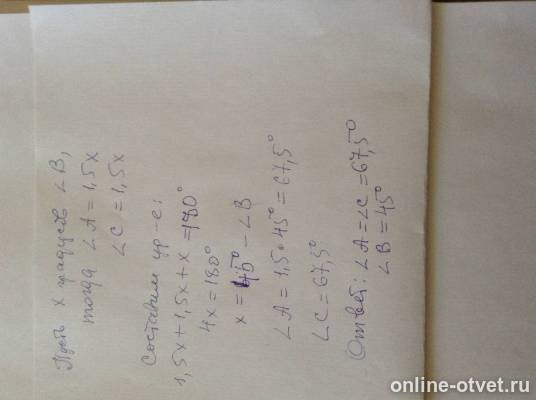 Пусть x градусов ∠B,
тогда ∠A = 1,5x
∠C = 1,5x
Составим ур-е:
1,5x+1,5x+x=180°
4x=180°
x=45° - ∠B
∠A = 1,5•45°=67,5°
∠C=67,5°
Ответ: ∠A=∠C=67,5°
∠B=45°
online-otvet.ru